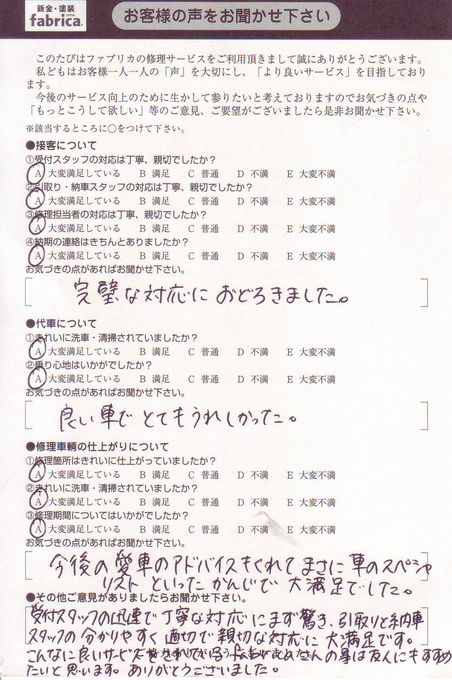 鈑金・塗装
fabrica.
お客様の声をお聞かせ下さい
このたびはファブリカの修理サービスをご利用頂きまして誠にありがとうございます。
私どもはお客様一人一人の「声」を大切にし、「より良いサービス」を目指しており
ます。
今後のサービス向上のために生かして参りたいと考えておりますのでお気づきの点や
「もっとこうして欲しい」等のご意見、ご要望がございましたら是非お聞かせ下さい。
※該当するところに○をつけて下さい。
●接客について
①受付スタッフの対応は丁寧、親切でしたか？
A 大変満足している B 満足 C 普通 D 不満 E 大変不満
②引取り・納車スタッフの対応は丁寧、親切でしたか？
A 大変満足している B 満足 C 普通 D 不満 E 大変不満
③修理担当者の対応は丁寧、親切でしたか？
A 大変満足している B 満足 C 普通 D 不満 E 大変不満
④納期の連絡はきちんとありましたか？
A 大変満足している B 満足 C 普通 D 不満 E 大変不満
お気づきの点があればお聞かせ下さい。
完璧な対応におどろきました。
●代車について
①きれいに洗車・清掃されていましたか？
A 大変満足している B 満足 C 普通 D 不満 E 大変不満
②乗り心地はいかがでしたか？
A 大変満足している B 満足 C 普通 D 不満 E 大変不満
お気づきの点があればお聞かせ下さい。
良い車でとてもうれしかった。
●修理車輌の仕上がりについて
①修理箇所はきれいに仕上がっていましたか？
A 大変満足している B 満足 C 普通 D 不満 E 大変不満
②きれいに洗車・清掃されていましたか？
A 大変満足している B 満足 C 普通 D 不満 E 大変不満
③修理期間についてはいかがでしたか？
A 大変満足している B 満足 C 普通 D 不満 E 大変不満
お気づきの点があればお聞かせ下さい。
今後の愛車のアドバイスもくれてまさに車のスペシャ
リストといったかんじで大満足でした。
●その他ご意見がありましたらお聞かせ下さい。
受付スタッフの迅速で丁寧な対応にまず驚き、引取りと納車
スタッフの分かりやすく適切で親切な対応に大満足です。
こんなに良いサービスをされている さんの事は友人にもすすめ
たいと思います。ありがとうございました。